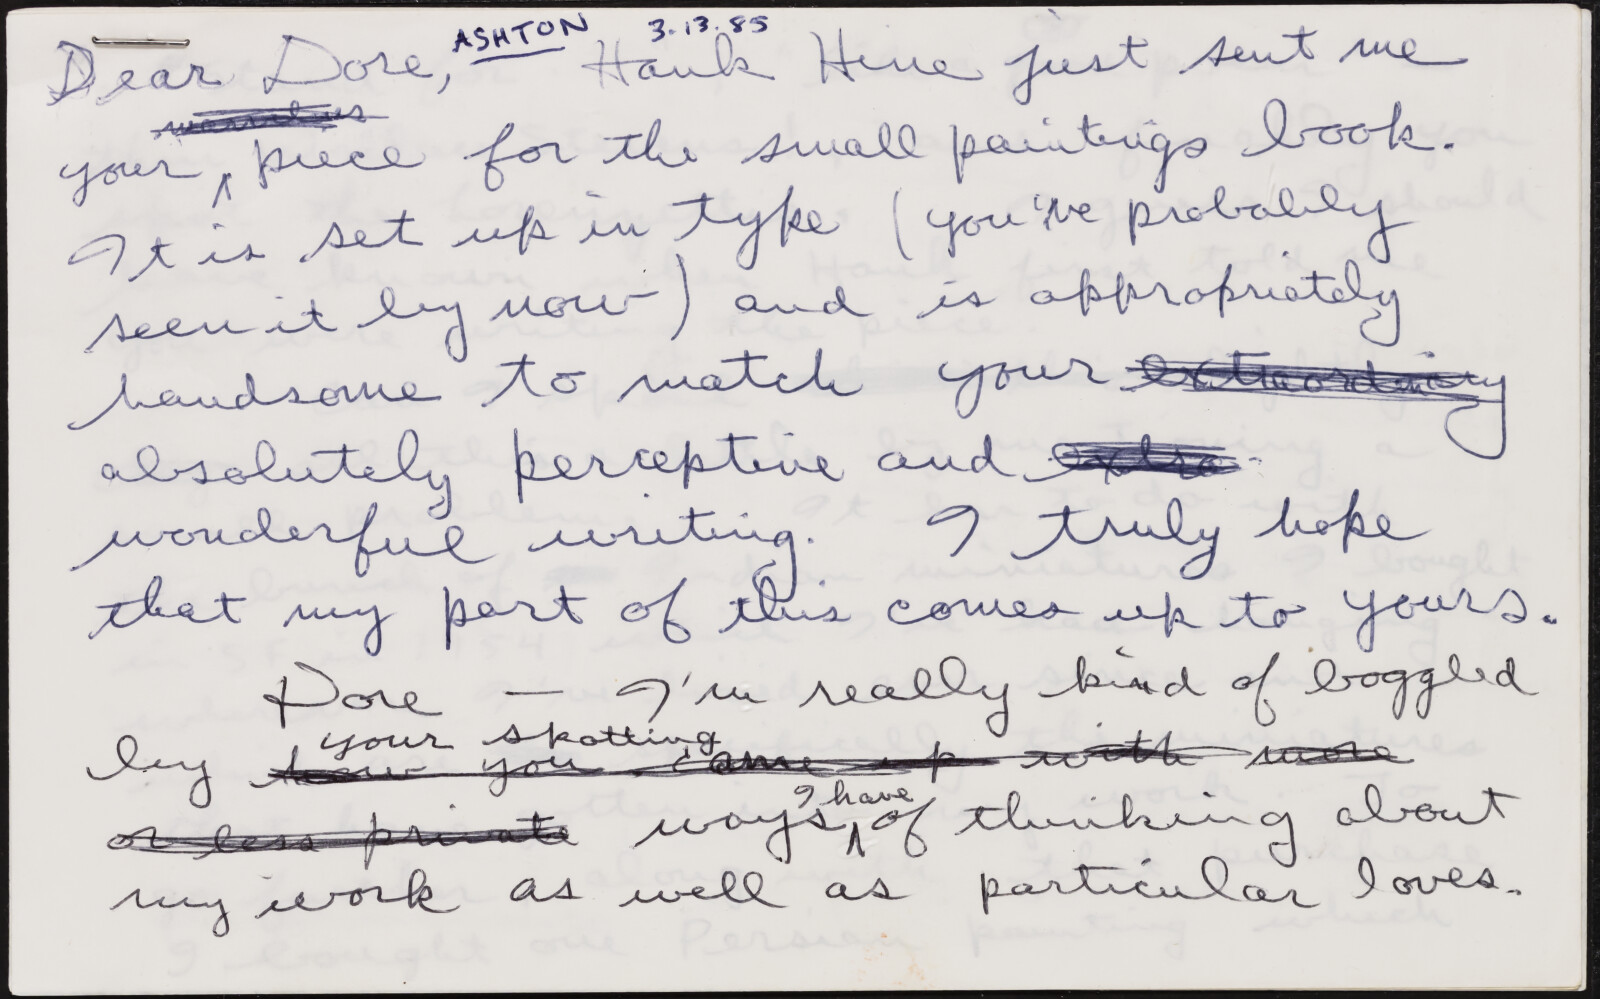 ASHTON 3.13.85
Dear Dore, Hank Hine just sent me
your piece for the small paintings book.
It is set up in type (you've probably
seen it by now) and is appropriately
handsome to match your extraordinary
absolutely perceptive and extra
wonderful writing. I truly hope
that my part of this comes up to yours.
Dore — I'm really kind of boggled
your spotting
by how you came up with more
I have
or less private ways of thinking about
my work as well as particular loves.